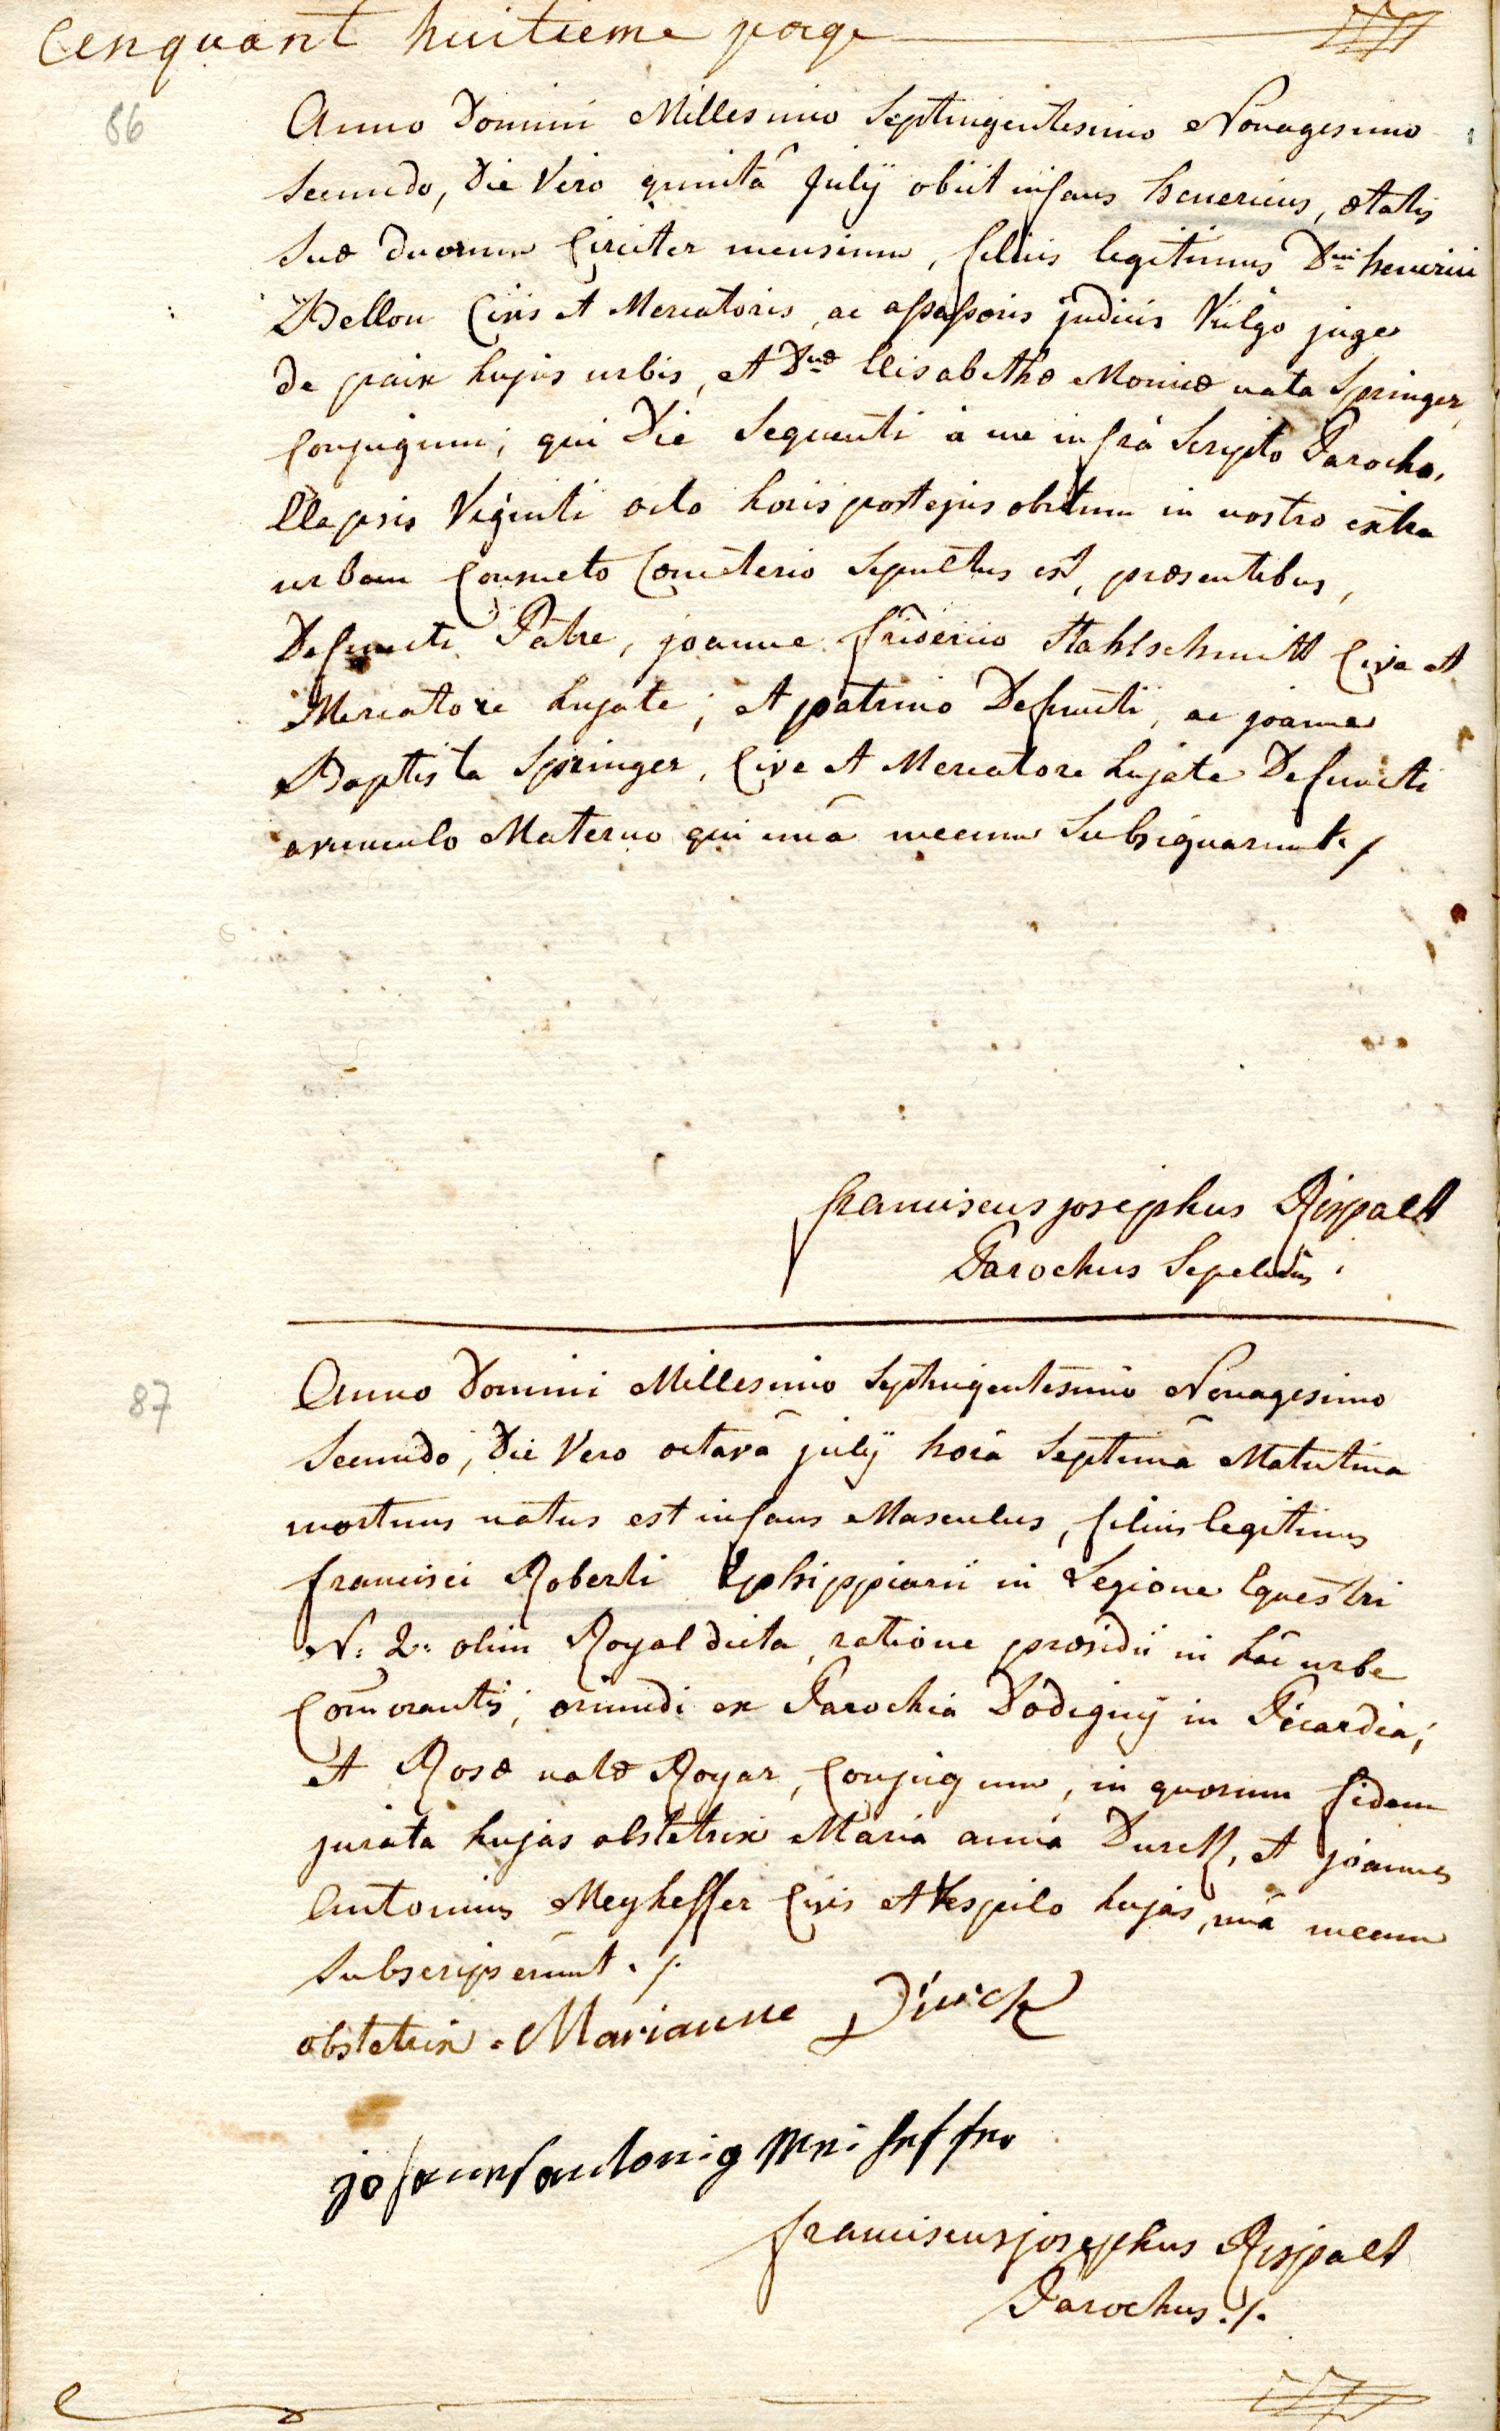 Cenquant huitieme page
86
Anno Domini Millesimo Septingentesimo Nonagesimo
Secundo, Die Vero quintâ July obiit infans henericus, ætatis
Suæ duorum Circiter mensium, filius legitimus Dni henerici
Bellon Civis et Mercatoris, ac assessoris judicis Vulgo juge
de paix hujus urbis, et Dnæ Elisabethæ Monicæ nata Springer,
Conjugum; qui Die Sequenti à me infrà Scripto Parocho,
Elapsis Viginti octo horis post ejus obitum in nostro extra
urbem Consueto Cœmeterio Sepultus est, præsentibus,
Defuncti Patre, joanne friderico Stahlschmitt Cive et
Mercatore hujate; et patrino Defuncti, ac joanne
Baptista Springer, Cive et Mercatore hujate Defuncti
avunculo Materno qui unâ mecum Subsignarunt ./
franciscus josephus Rispalt
Parochus Sepeliens
87
Anno Domini Millesimo Septingentesimo Nonagesimo
Secundo, Die Vero octavâ july horâ Septimâ Matutina
mortuus natus est infans Masculus, filius legitimus
francisci Roberti Ephippiarii in Legione Equestri
N: 2: olim Royal dicta, ratione præsidii in hâc urbe
Com̄orantis; oriundi ex Parochia Dodigny in Picardia;
et Rosæ natæ Royar, Conjugum, in quorum fidem
jurata hujas obstetrix Maria anna Durck, et joannes
Antonius Meyheffer Civis et Vespilo hujas, unâ mecum
Subscripserunt ./.
obstetrix . Marianne Dürck
johannes antonig Mei heffer
franciscus josephus Rispalt
Parochus ./.